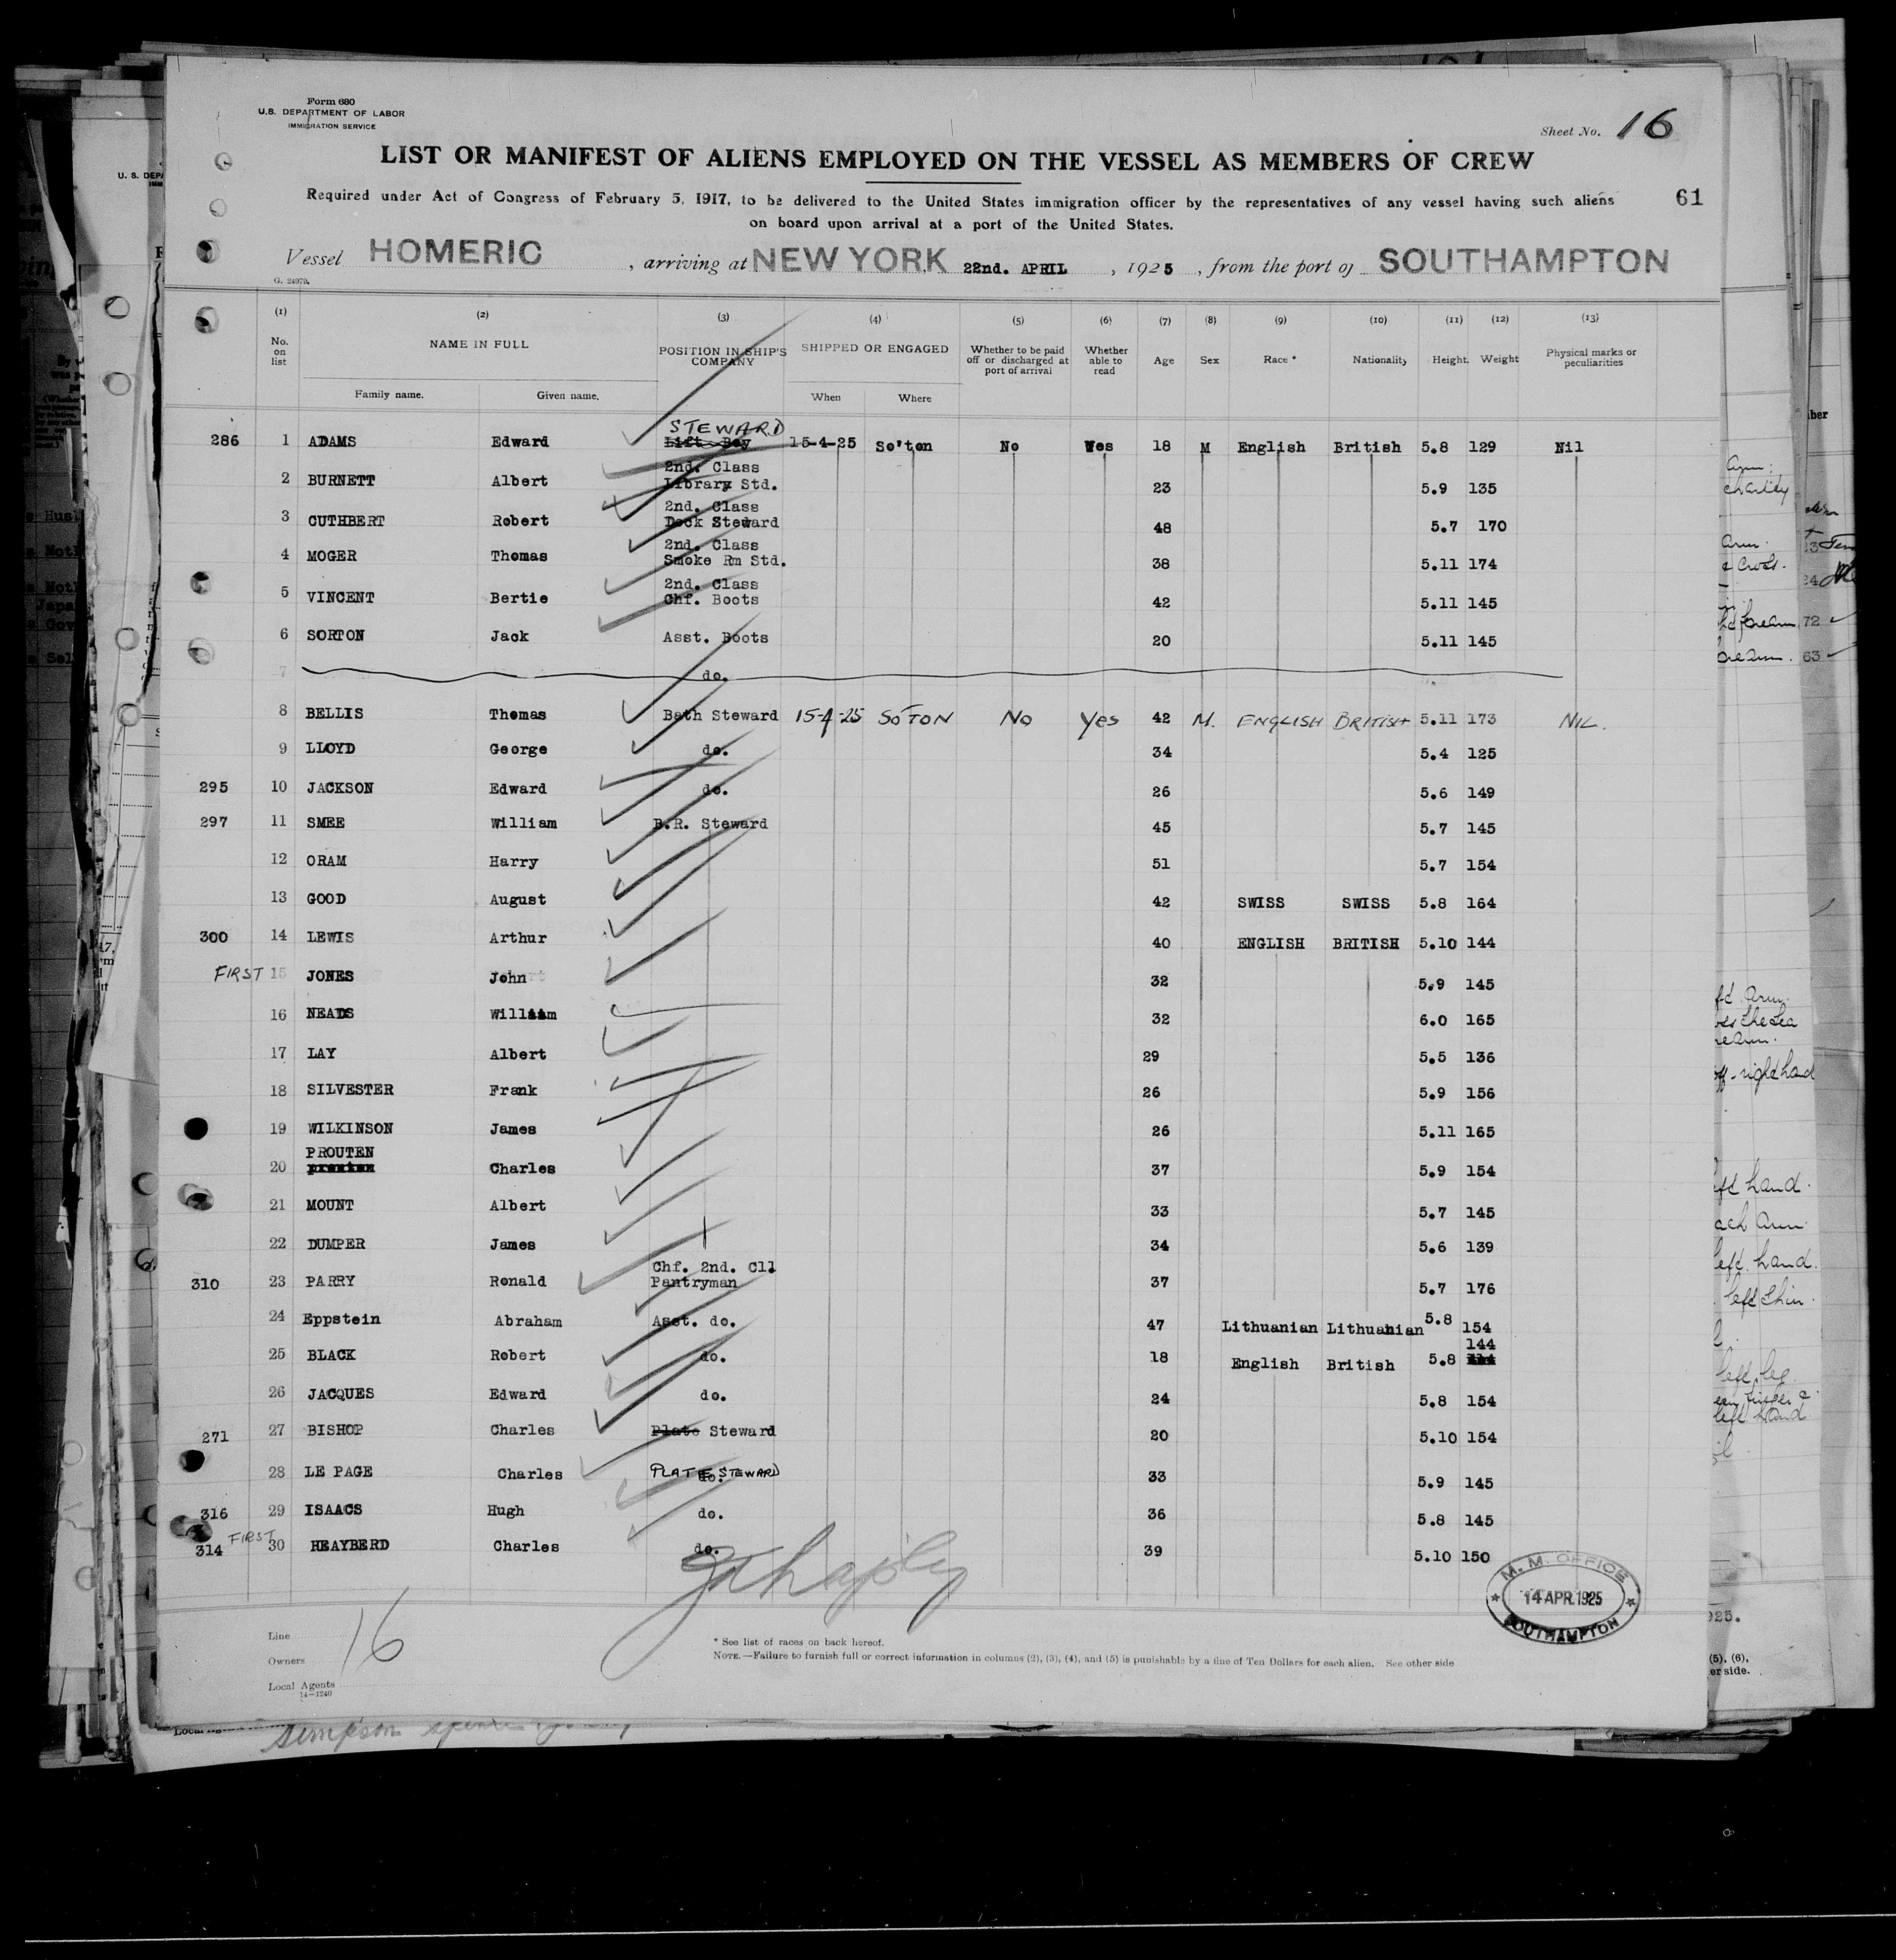 Form 680
U.S. DEPARTMENT OF LABOR
IMMIGRATION SERVICE
Sheet No. 16
LIST OR MANIFEST OF ALIENS EMPLOYED ON THE VESSEL AS MEMBERS OF CREW
Required under Act of Congress of February 5, 1917, to be delivered to the United States immigration officer by the representatives of any vessel having such aliens
61
on board upon arrival at a port of the United States.
Vessel HOMERIC , arriving at NEW YORK 22nd. APRIL , 1925 , from the port of SOUTHAMPTON
G. 24979.
(1) (2) (3) (4) (5) (6) (7) (8) (9) (10) (11) (12) (13)
No. on list NAME IN FULL POSITION IN SHIP'S COMPANY SHIPPED OR ENGAGED Whether to be paid off or discharged at port of arrival Whether able to read Age Sex Race * Nationality Height. Weight Physical marks or peculiarities
Family name. Given name. When Where
STEWARD
286 1 ADAMS Edward Lift Boy 15-4-25 So'ton No Yes 18 M English British 5.8 129 Nil
2nd. Class
2 BURNETT Albert Library Std. 23 5.9 135
2nd. Class
3 CUTHBERT Robert Deck Steward 48 5.7 170
2nd. Class
4 MOGER Thomas Smoke Rm Std. 38 5.11 174
2nd. Class
5 VINCENT Bertie Chf. Boots 42 5.11 145
6 SORTON Jack Asst. Boots 20 5.11 145
7 do.
8 BELLIS Thomas Bath Steward 15-4-25 SO'TON No Yes 42 M. ENGLISH BRITISH 5.11 173 NIL.
9 LLOYD George do. 34 5.4 125
295 10 JACKSON Edward do. 26 5.6 149
297 11 SMEE William B.R. Steward 45 5.7 145
12 ORAM Harry 51 5.7 154
13 GOOD August 42 SWISS SWISS 5.8 164
300 14 LEWIS Arthur 40 ENGLISH BRITISH 5.10 144
FIRST 15 JONES John 32 5.9 145
16 NEADS William 32 6.0 165
17 LAY Albert 29 5.5 136
18 SILVESTER Frank 26 5.9 156
19 WILKINSON James 26 5.11 165
PROUTEN
20 Charles 37 5.9 154
21 MOUNT Albert 33 5.7 145
22 DUMPER James 34 5.6 139
Chf. 2nd. Cll
310 23 PARRY Ronald Pantryman 37 5.7 176
24 Eppstein Abraham Asst. do. 47 Lithuanian Lithuanian 5.8 154
144
25 BLACK Robert do. 18 English British 5.8
26 JACQUES Edward do. 24 5.8 154
271 27 BISHOP Charles Plate Steward 20 5.10 154
28 LE PAGE Charles PLATE STEWARD do. 33 5.9 145
316 29 ISAACS Hugh do. 36 5.8 145
FIRST
314 30 HEAYBERD Charles do. 39 5.10 150
M. M. OFFICE
14 APR. 1925
SOUTHAMPTON
Line
Owners
Local Agents
14-1240
16
* See list of races on back hereof.
NOTE.—Failure to furnish full or correct information in columns (2), (3), (4), and (5) is punishable by a fine of Ten Dollars for each alien. See other side